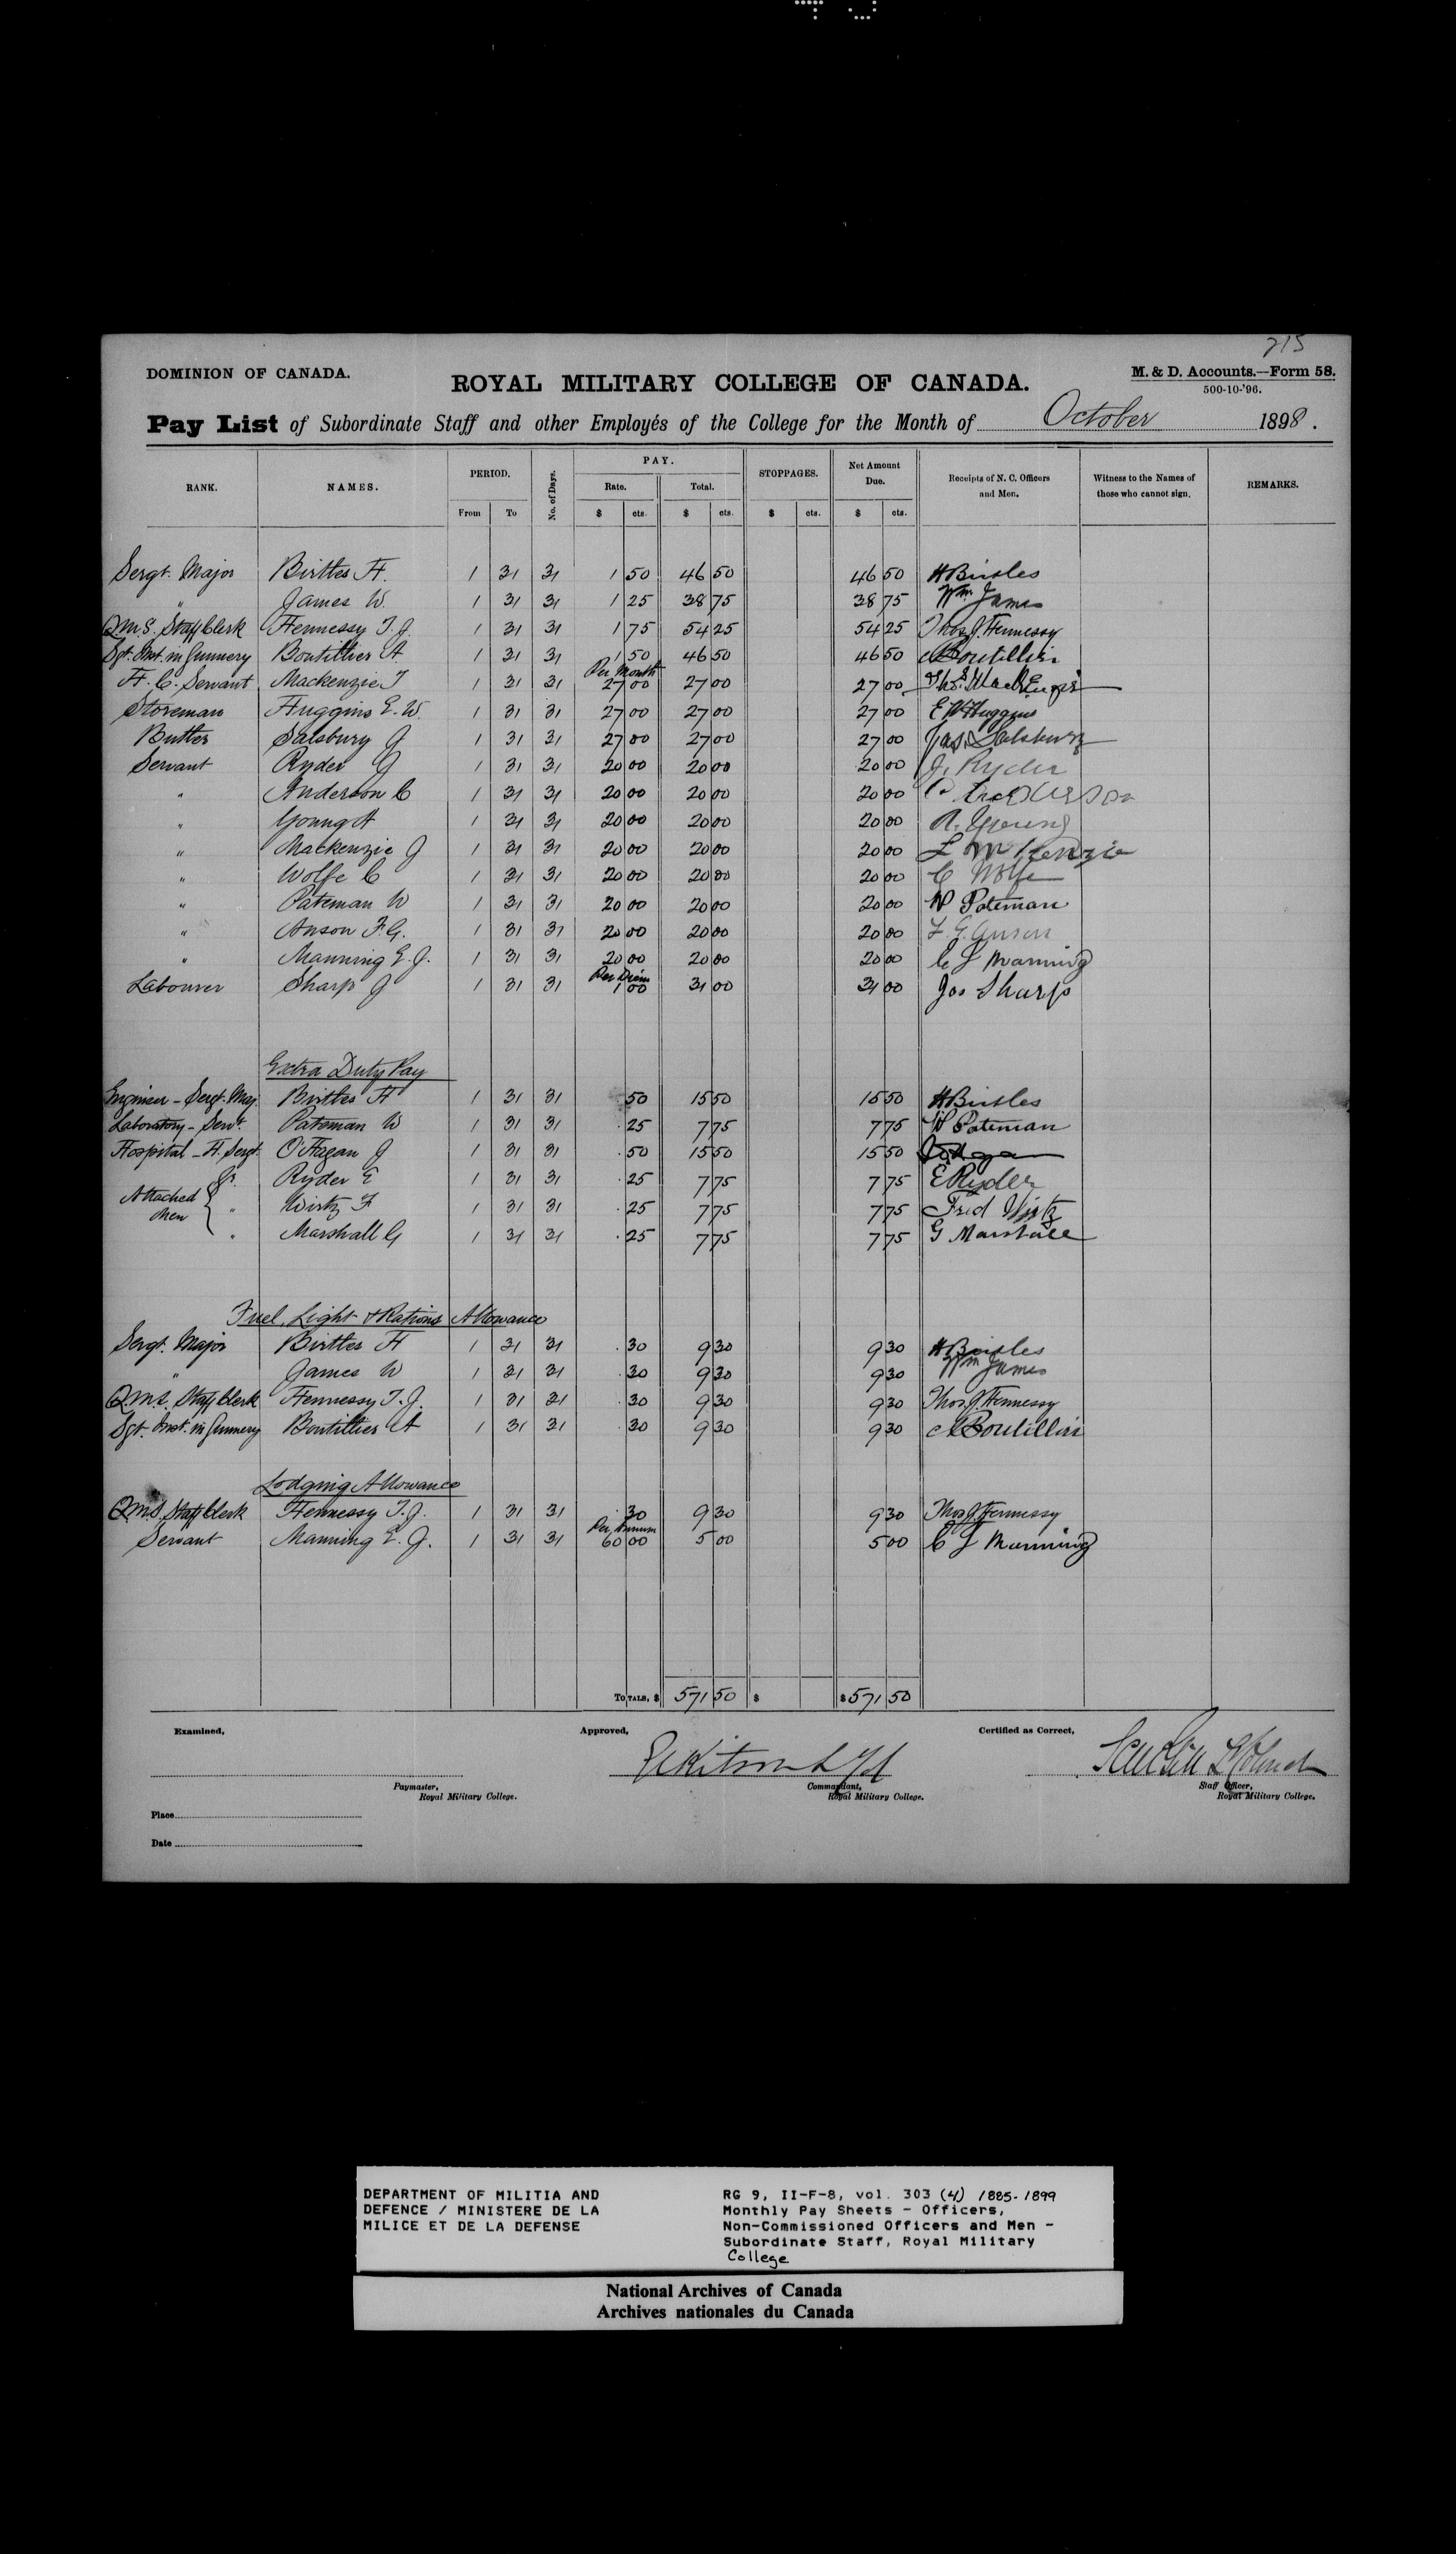 215
DOMINION OF CANADA.
M. & D. Accounts.—Form 58.
500-10-'96.
ROYAL MILITARY COLLEGE OF CANADA.
Pay List of Subordinate Staff and other Employés of the College for the Month of October 1898.
RANK. NAMES. PERIOD. From To No. of Days. PAY. Rate. $ cts. Total. $ cts. STOPPAGES. $ cts. Net Amount Due. $ cts. Receipts of N. C. Officers and Men. Witness to the Names of those who cannot sign. REMARKS.
Sergt. Major Birtles H. 1 31 31 1 50 46 50 46 50 H Birtles
" James W. 1 31 31 1 25 38 75 38 75 Wm. James
Q.M.S. Staff Clerk Hennessy T. J. 1 31 31 1 75 54 25 54 25 Thos J. Hennessy
Sgt. Inst. in Gunnery Boutillier A 1 31 31 1 50 46 50 46 50 A Boutillier
Per Month
H. C. Servant Mackenzie T 1 31 31 27 00 27 00 27 00 Thos. MacKenzie
Storeman Huggins E. W. 1 31 31 27 00 27 00 27 00 E W Huggins
Butler Salsbury J 1 31 31 27 00 27 00 27 00 Jas. Salsbury
Servant Ryder J 1 31 31 20 00 20 00 20 00 J. Ryder
" Anderson C 1 31 31 20 00 20 00 20 00 C Anderson
" Young A 1 31 31 20 00 20 00 20 00 A. Young
" Mackenzie J 1 31 31 20 00 20 00 20 00 McKenzie
" Wolfe C 1 31 31 20 00 20 00 20 00 C Wolfe
" Pateman W 1 31 31 20 00 20 00 20 00 W Pateman
" Anson F. G. 1 31 31 20 00 20 00 20 00 F. G. Anson
" Manning E. J. 1 31 31 20 00 20 00 20 00 E J Manning
Per Diem
Labourer Sharp J 1 31 31 1 00 31 00 31 00 Jos Sharp
Extra Duty Pay
Engineer - Sergt. Maj. Birtles H 1 31 31 50 15 50 15 50 H Birtles
Laboratory - Servt. Pateman W 1 31 31 .25 7 75 7 75 W Pateman
Hospital - H. Sergt. O'Hagan J 1 31 31 .50 15 50 15 50
Attached Men Gr. Ryder E 1 31 31 .25 7 75 7 75 E Ryder
" Wirtz F 1 31 31 .25 7 75 7 75 Fred Wirtz
" Marshall G 1 31 31 .25 7 75 7 75 G Marshall
Fuel, Light & Rations Allowance
Sergt. Major Birtles H 1 31 31 .30 9 30 9 30 H Birtles
" James W 1 31 31 .30 9 30 9 30 Wm James
Q.M.S. Staff Clerk Hennessy T. J. 1 31 31 .30 9 30 9 30 Thos J. Hennessy
Sgt. Inst. in Gunnery Boutillier A 1 31 31 .30 9 30 9 30 A Boutillier
Lodging Allowance
Q.M.S. Staff Clerk Hennessy T. J. 1 31 31 .30 9 30 9 30 Thos J Hennessy
Per Annum
Servant Manning E. J. 1 31 31 60 00 5 00 5 00 E J Manning
TOTALS, $ 571 50 $ $ 571 50
Examined, Approved, Certified as Correct,
Paymaster, Royal Military College.
Commandant, Royal Military College.
Staff Officer, Royal Military College.
Place
Date
DEPARTMENT OF MILITIA AND
DEFENCE / MINISTERE DE LA
MILICE ET DE LA DEFENSE
RG 9, II-F-8, vol. 303 (4) 1885-1899
Monthly Pay Sheets - Officers,
Non-Commissioned Officers and Men -
Subordinate Staff, Royal Military
College
National Archives of Canada
Archives nationales du Canada